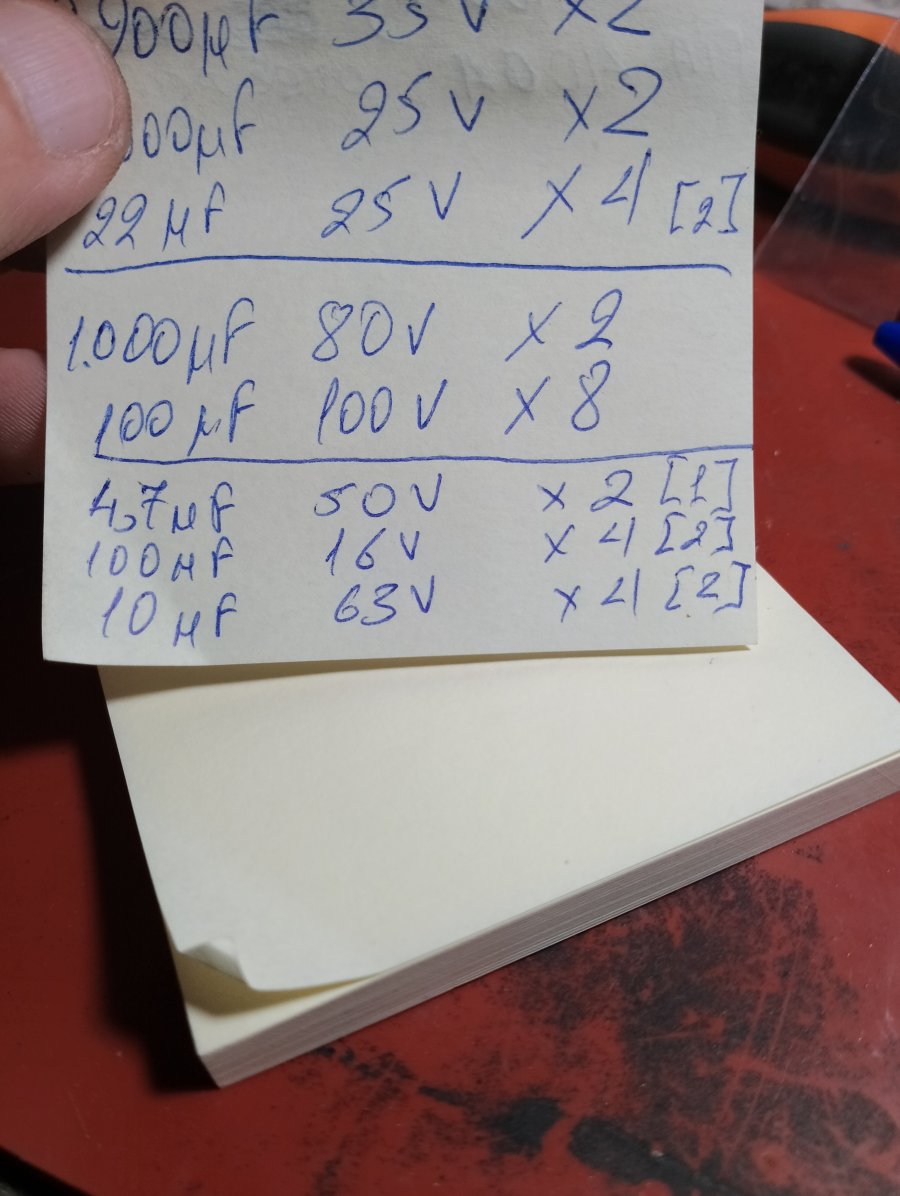 900µF 35V x2
00µF 25V x2
22µF 25V x4 [2]
1.000µF 80V x2
100µF 100V x8
4,7µF 50V x2 [1]
100µF 16V x4 [2]
10µF 63V x4 [2]